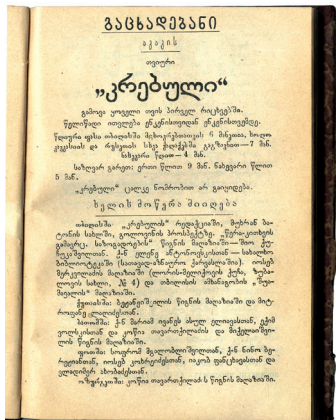 განცხადებანი
აკაკის
თვიური
„კრებული“
გამოვა ყოველი თვის პირველ რიცხვებში.
წელიწადი ითვლება ენკენისთვიდან ენკენისთვემდე.
წლიური ფასი თბილისში მცხოვრებთათვის 6 მანეთია, ხოლო
კავკასიის და რუსეთის სხვა ქალაქებში გაგზავნით — 7 მან.
ნახევარი წლით — 4 მან.
საზღვარ გარეთ: ერთი წლით 9 მან. ნახევარი წლით
5 მან.
„კრებული“ ცალკე ნომრობით არ გაიყიდება.
ხელის მოწერა მიიღება
თბილისში: „კრებულის“ რედაქციაში, მუხრან ბა-
ტონის სახლში, გოლოვინის პროსპექტზე. „წერა-კითხვის
გამავრც. საზოგადოების“ წიგნის მაღაზიაში — შიო ქუ-
ჩუკაშვილთან. ქ-ნ ელენე ანტონოვსკისთან — სახალხო
ბიბლიოთეკაში (სათავად-აზნაურო ქარვასლაში). იოსებ
მერკვილაძის მაღაზიაში (ლორის-მელიქოვის ქუჩა, ზუბა-
ლოვის სახლი, № 4) და თბილისის ამხანაგობის „შუა-
მავალის“ მაღაზიაში.
ქუთაისში: ბეჟანეიშვილის წიგნის მაღაზიაში და მიტ-
როფანე ლაღიძესთან.
ბათომში: ქ-ნ მარიამ ივანეს ასულ ელიავასთან, ექიმ
ვოლსკისთან და კოწია თავართქილაძის და მიქელაიშვი-
ლის წიგნის მაღაზიაში.
ფოთში: სოფრომ მგალობლიშვილთან, ქ-ნ ნინო ბე-
რეჟიანთან, იოსებ კობრეიძესთან, იაკობ ფანცხავასთან და
ვლადიმერ ახობაძესთან.
ოზურგეთში: კოწია თავართქილაძის წიგნის მაღაზიაში.